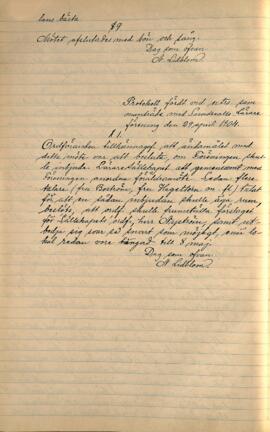 lans bästa
§9
Mötet afslutades med bön och sång.
Dag som ofvan
A. Lidblom.
Protokoll fördt vid extra sam-
manträde med Lärare
förening den 29 april 1904.
§1.
Ordföranden tillkännagaf, att ändamålet med
detta möte var att besluta, om Föreningen skul-
le inbjuda Läraresällskapet att gemensamt med
Föreningen anordna föräldramöte. Sedan flere
talare (fru Boström, fru Hagelton m. fl.) talat
för att en sådan inbjudan skulle äga rum,
beslöts, att ordf. skulle framställa förslaget
för Sällskapets ordf., herr samt ut-
bedja sig svar så snart som möjligt, enär lo-
kal redan vore till 8 maj.
Dag som ofvan
A. Lidblom.